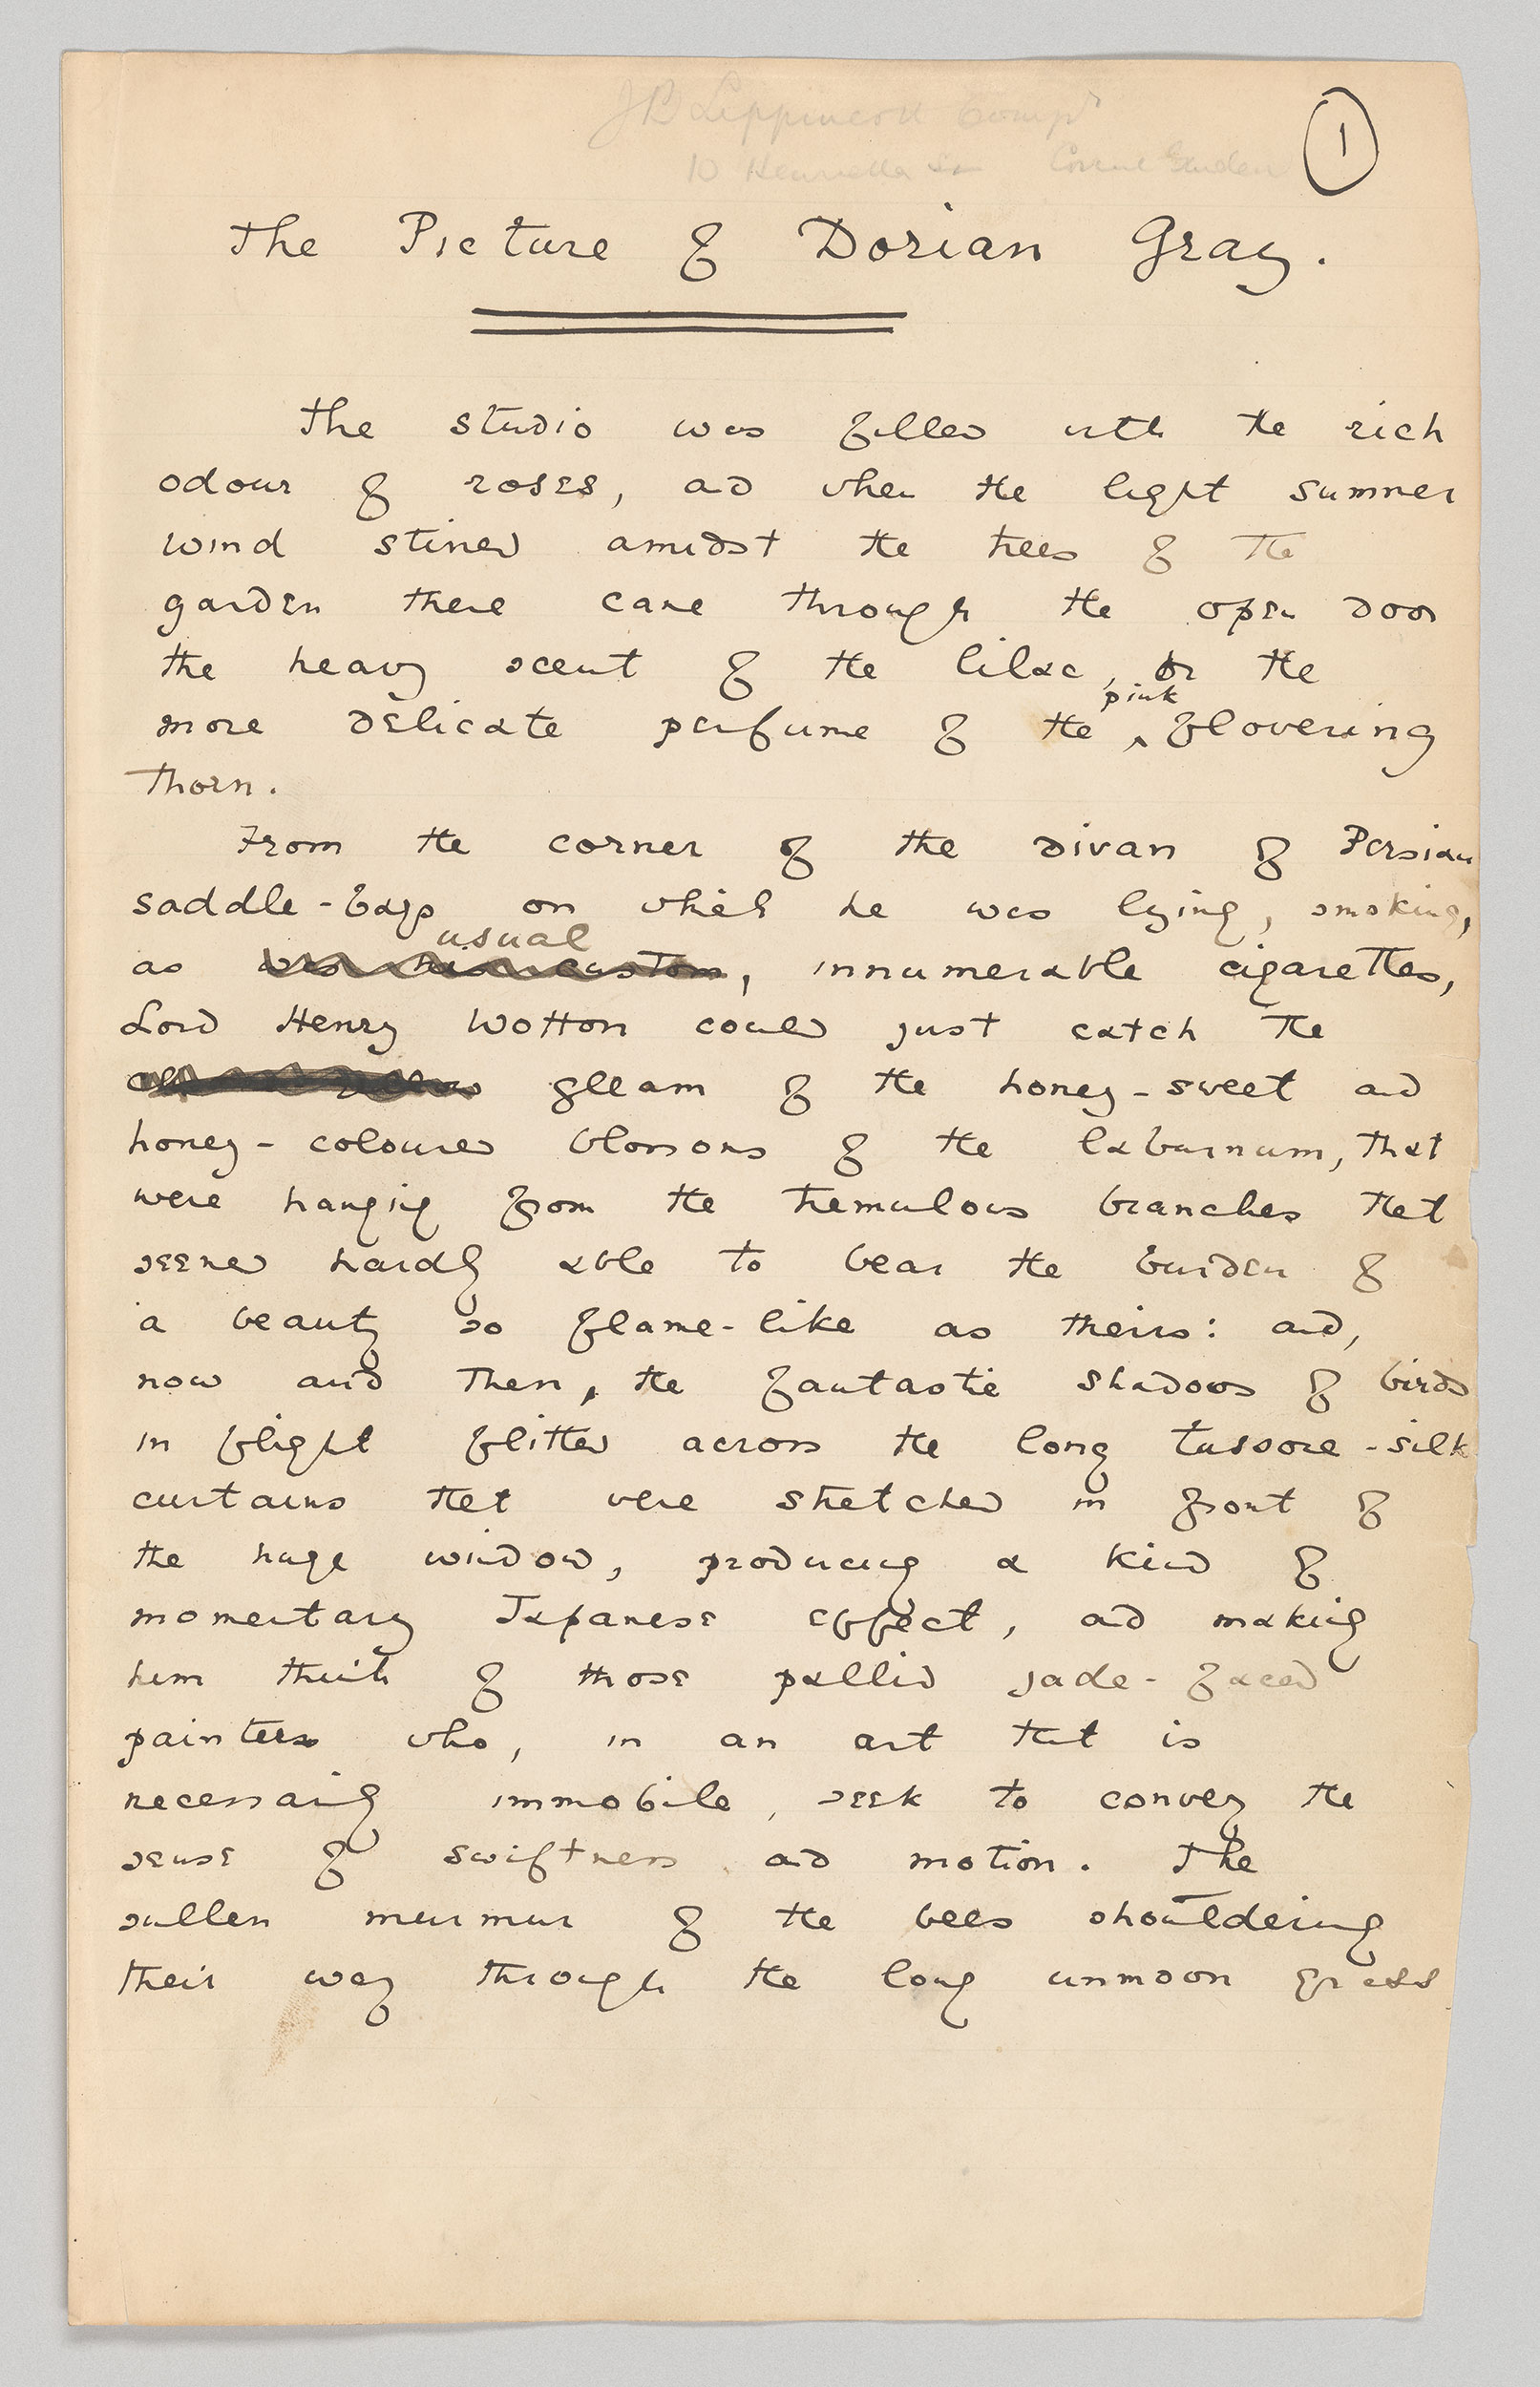 J B Lippincott Comp^y
10 Henrietta St Covent Garden
1
The Picture of Dorian Gray.
The studio was filled with the rich
odour of roses, and when the light summer
wind stirred amidst the trees of the
garden there came through the open door
the heavy scent of the lilac, or the
pink
more delicate perfume of the ‸ flowering
thorn.
From the corner of the divan of Persian
saddle-bags on which he was lying, smoking,
usual
as was his custom, innumerable cigarettes,
Lord Henry Wotton could just catch the
gleam of the honey-sweet and
honey-coloured blossoms of the laburnum, that
were hanging from the tremulous branches that
seemed hardly able to bear the burden of
a beauty so flame-like as theirs: and,
now and then, the fantastic shadows of birds
in flight flitted across the long tussore-silk
curtains that were stretched in front of
the huge window, producing a kind of
momentary Japanese effect, and making
him think of those pallid jade-faced
painters who, in an art that is
necessarily immobile, seek to convey the
sense of swiftness and motion. The
sullen murmur of the bees shouldering
their way through the long unmown grass